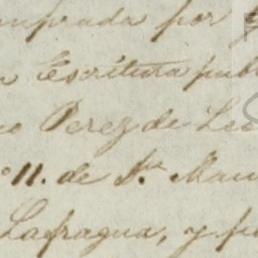 mprada por
Escritura pub
o Perez de Leo
11. de S.ta Mau
Lafragua, y fu